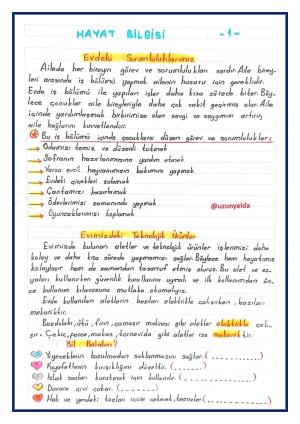 HAYAT BİLGİSİ -1-
Evdeki Sorumluluklarımız
Ailede her bireyin görev ve sorumlulukları vardır. Aile birey-
leri arasında iş bölümü yapmak ailenin huzuru için gereklidir.
Evde iş bölümü ile yapılan işler daha kısa sürede biter. Böy-
lece çocuklar aile bireyleriyle daha çok vakit geçirmiş olur. Aile
içinde yardımlaşmak birbirimize olan sevgi ve saygımızı artırır,
aile bağlarını kuvvetlendirir.
Bu iş bölümü içinde çocuklara düşen görev ve sorumluluklar;
Odamızı temiz ve düzenli tutmak
Sofranın hazırlanmasına yardım etmek
Varsa evcil hayvanımızın bakımını yapmak
Evdeki çiçekleri sulamak
Çantamızı hazırlamak
Ödevlerimizi zamanında yapmak
@uzunyelda
Oyuncaklarımızı toplamak
Evimizdeki Teknolojik Ürünler
Evimizde bulunan aletler ve teknolojik ürünler işlerimizi daha
kolay ve daha kısa sürede yapmamızı sağlar. Böylece hem hayatımız
kolaylaşır hem de zamandan tasarruf etmiş oluruz. Bu alet ve eş-
yaları kullanırken güvenlik kurallarına uymalı ve ilk kullanımdan ön-
ce kullanım kılavuzuna mutlaka okumalıyız.
Evde kullanılan aletlerin bazıları elektrikle çalışırken, bazıları
mekaniktir.
Buzdolabı, ütü, fırın, çamaşır makinesi gibi aletler elektrikle çalı-
şır. Çekiç, pense, makas, tornavida gibi aletler ise mekaniktir.
Bil Bakalım?
Yiyeceklerin bozulmadan saklanmasını sağlar. (
Kıyafetlerin kırışıklığını düzeltir. (
Islak saçları kurutmak için kullanılır. (
Duvara çivi çakar. (
Halı ve yerdeki tozları içine çekerek, temizler. (